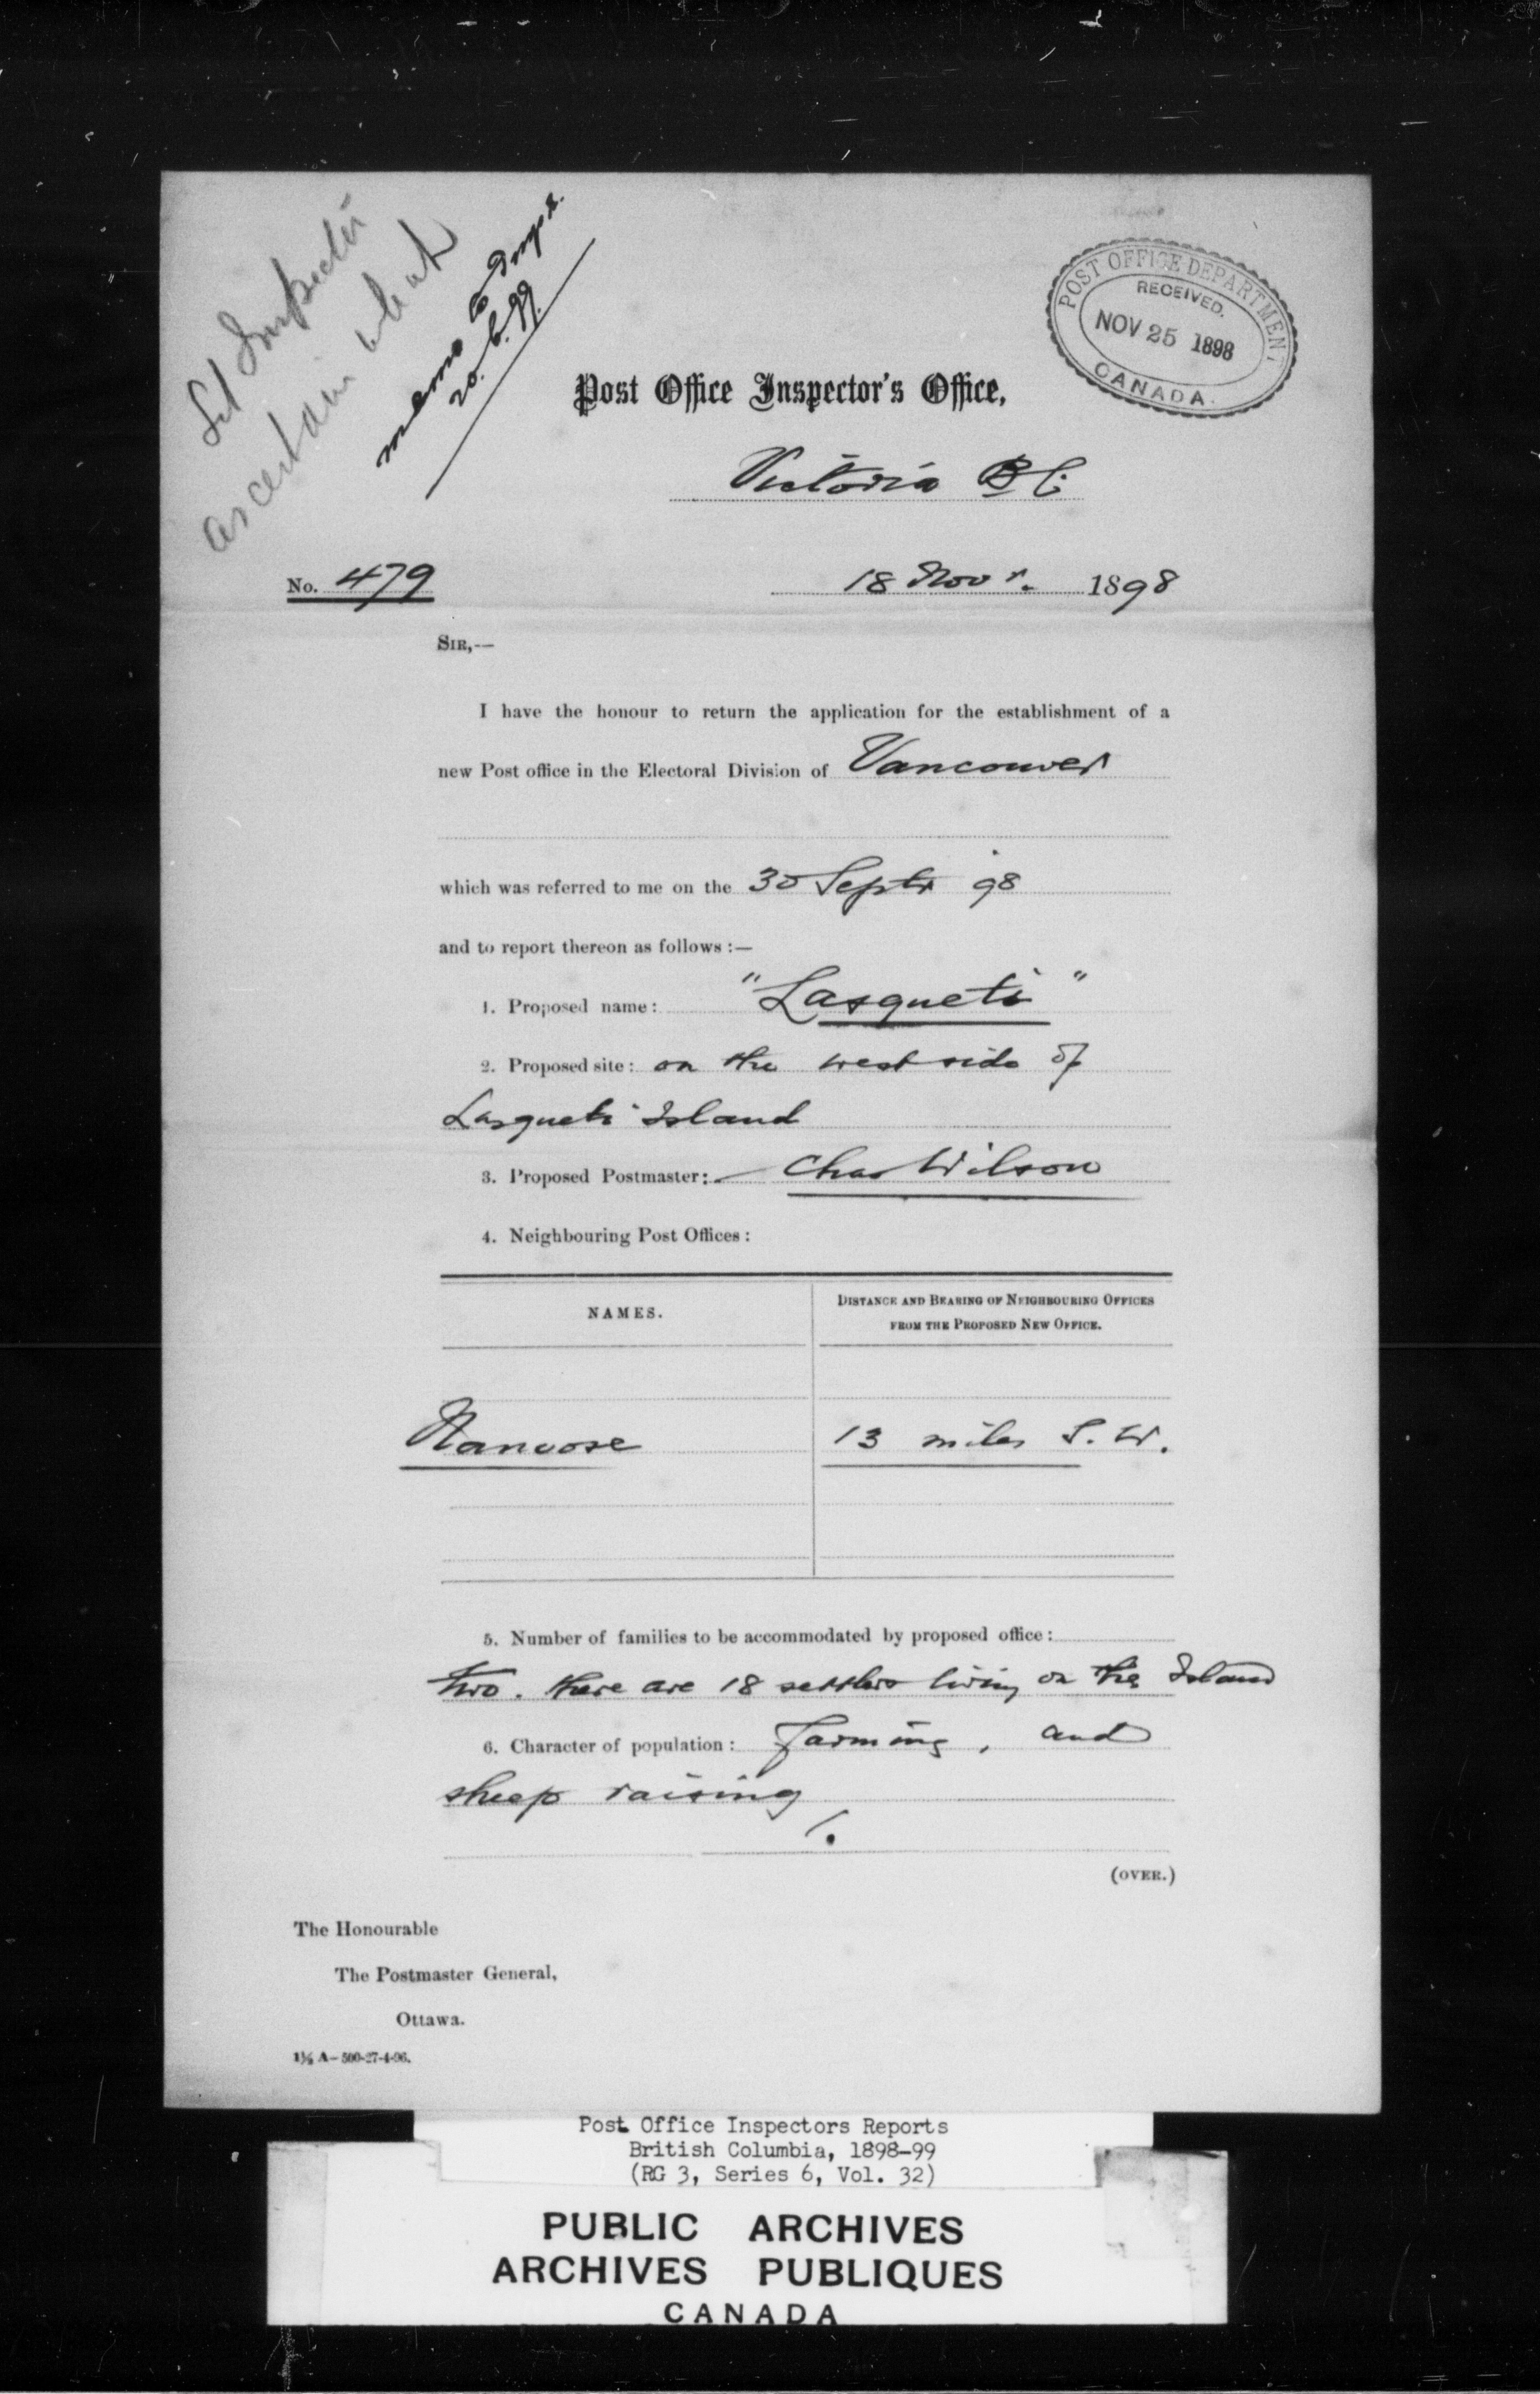 Let Inspector
ascertain what
memo to Inspr.
20.6.99.
POST OFFICE DEPARTMENT
RECEIVED.
NOV 25 1898
CANADA.
Post Office Inspector's Office,
Victoria B C.
No. 479
18 Novr. 1898
SIR,—
I have the honour to return the application for the establishment of a
new Post office in the Electoral Division of Vancouver
which was referred to me on the 30 Septr 98
and to report thereon as follows :—
1. Proposed name: "Lasqueti"
2. Proposed site: on the west side of
Lasqueti Island
3. Proposed Postmaster: Chas Wilson
4. Neighbouring Post Offices :
NAMES.
DISTANCE AND BEARING OF NEIGHBOURING OFFICES
FROM THE PROPOSED NEW OFFICE.
Nanoose
13 miles S. W.
5. Number of families to be accommodated by proposed office :
two. there are 18 settlers living on the Island
6. Character of population : farming, and
sheep raising
(OVER.)
The Honourable
The Postmaster General,
Ottawa.
1½ A—500-27-4-96.
Post Office Inspectors Reports
British Columbia, 1898-99
(RG 3, Series 6, Vol. 32)
PUBLIC ARCHIVES
ARCHIVES PUBLIQUES
CANADA